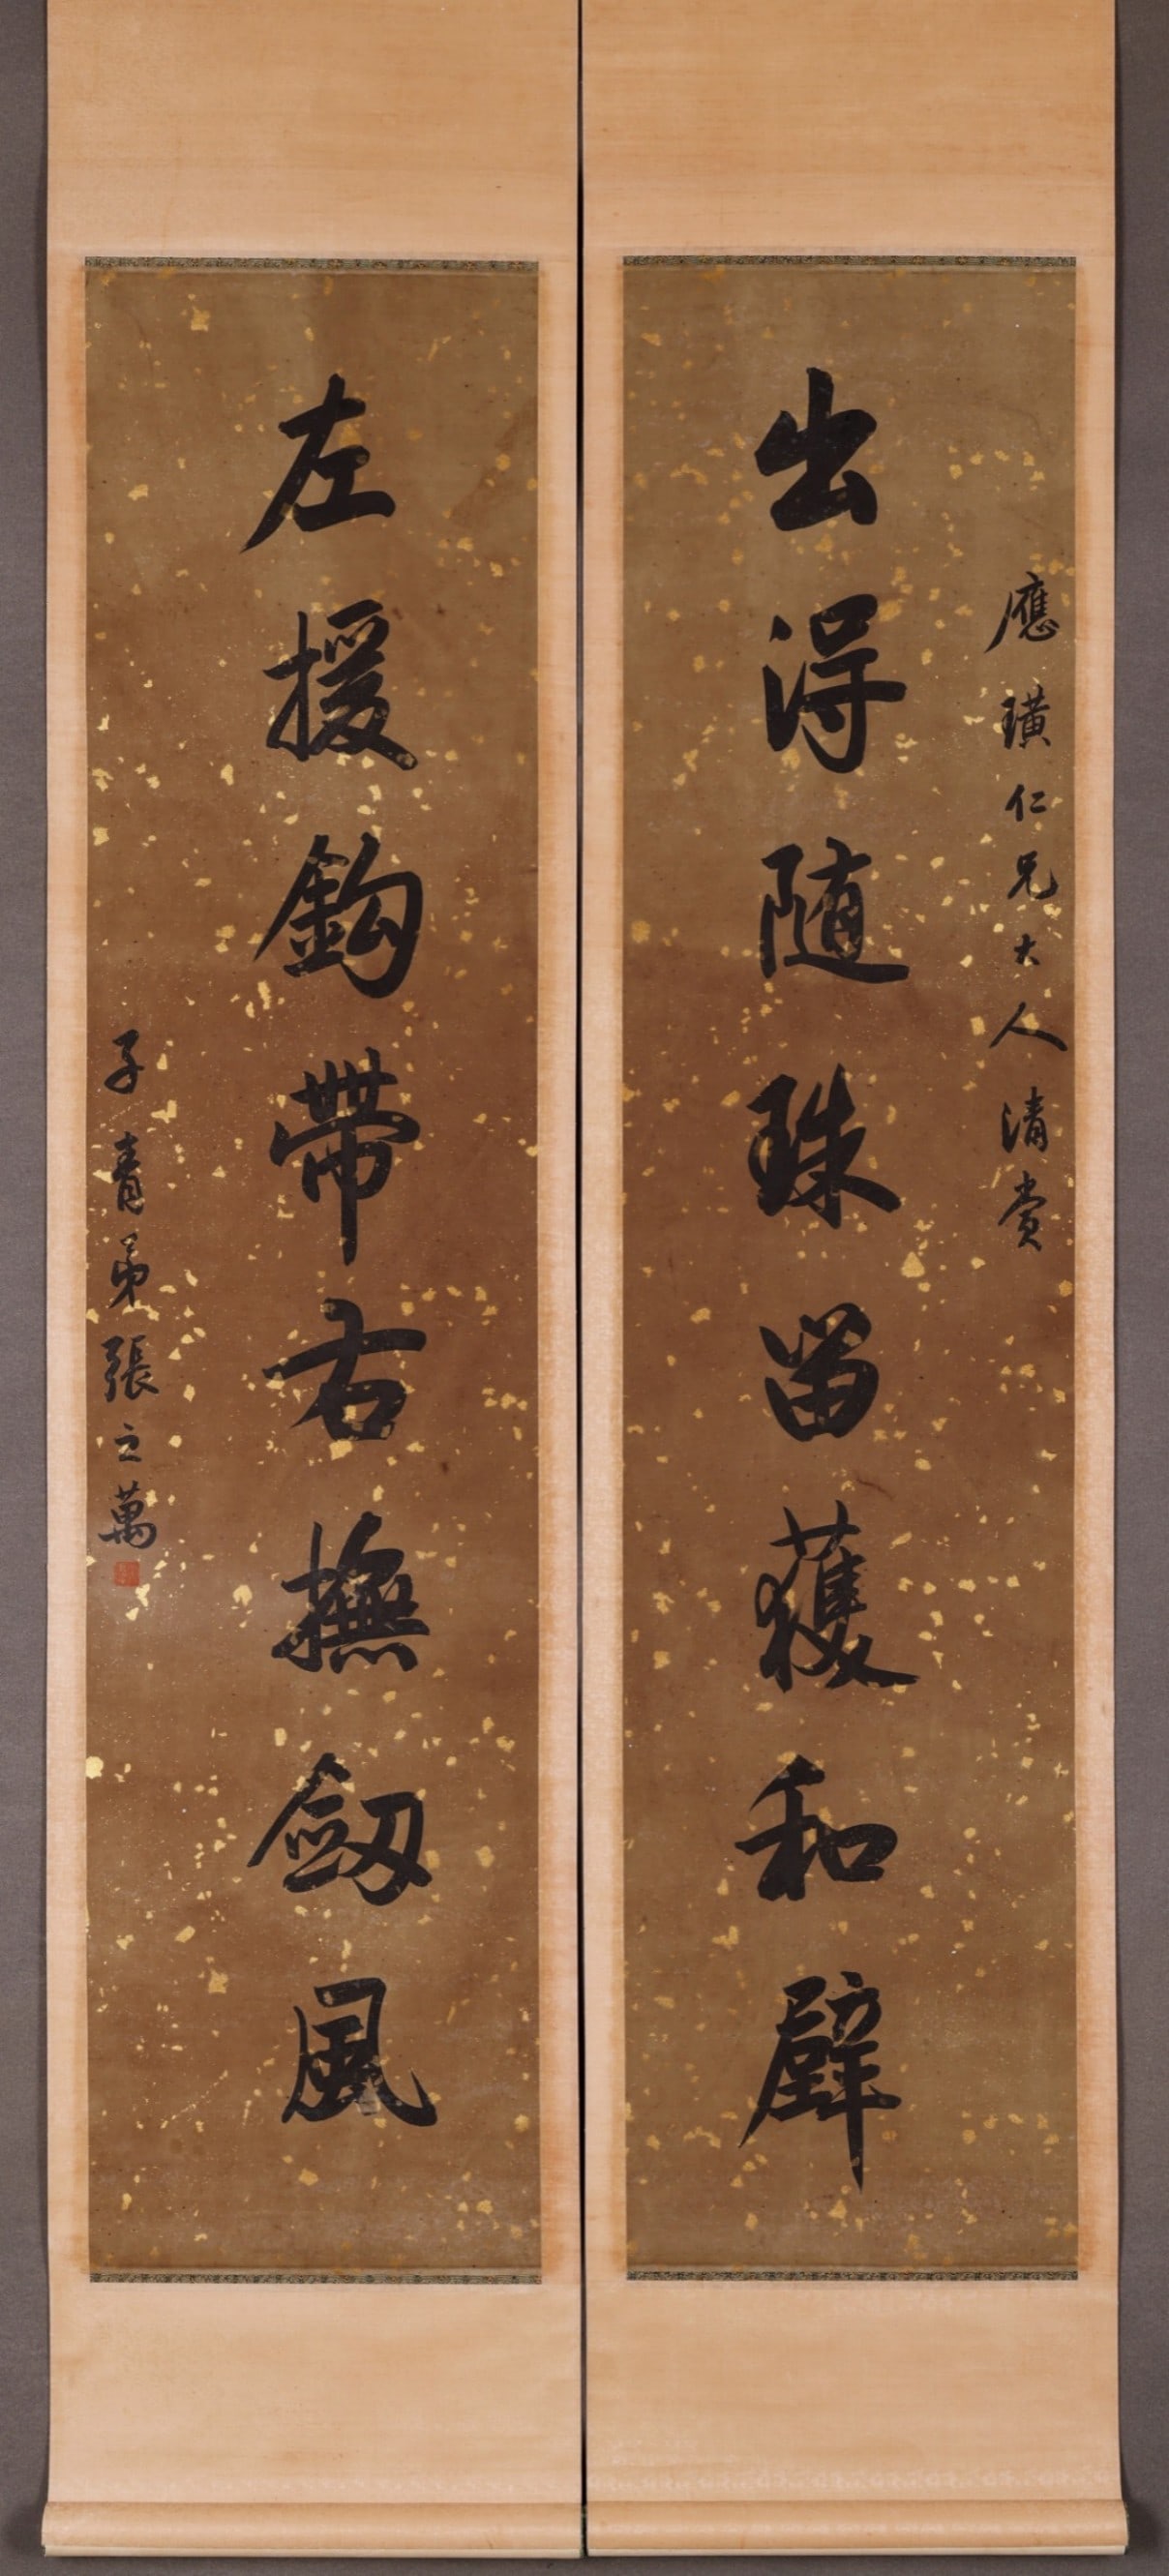 應璜仁兄大人清賞
出得随珠留獲和璧
左援鈎帶右撫劔風
子青弟張之萬